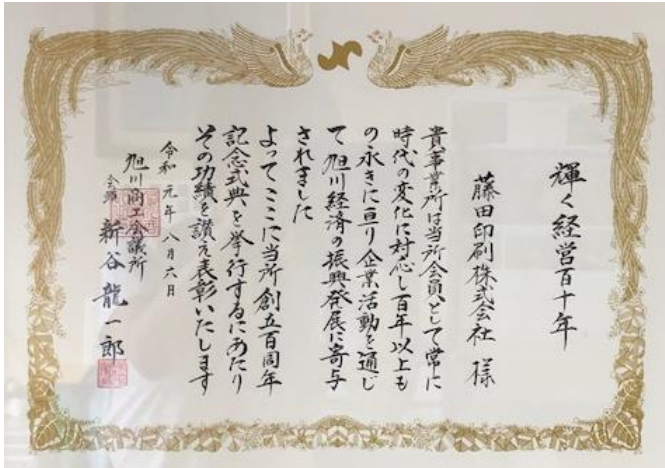 輝く経営百十年
藤田印刷株式会社 様
貴事業所は当所会員として常に
時代の変化に対応し百年以上も
の永きに亘り企業活動を通じ
て旭川経済の振興発展に寄与
されました
よってここに当所創立百周年
記念式典を挙行するにあたり
その功績を讃え表彰いたします
令和元年八月六日
旭川商工会議所
会頭 新谷龍一郎